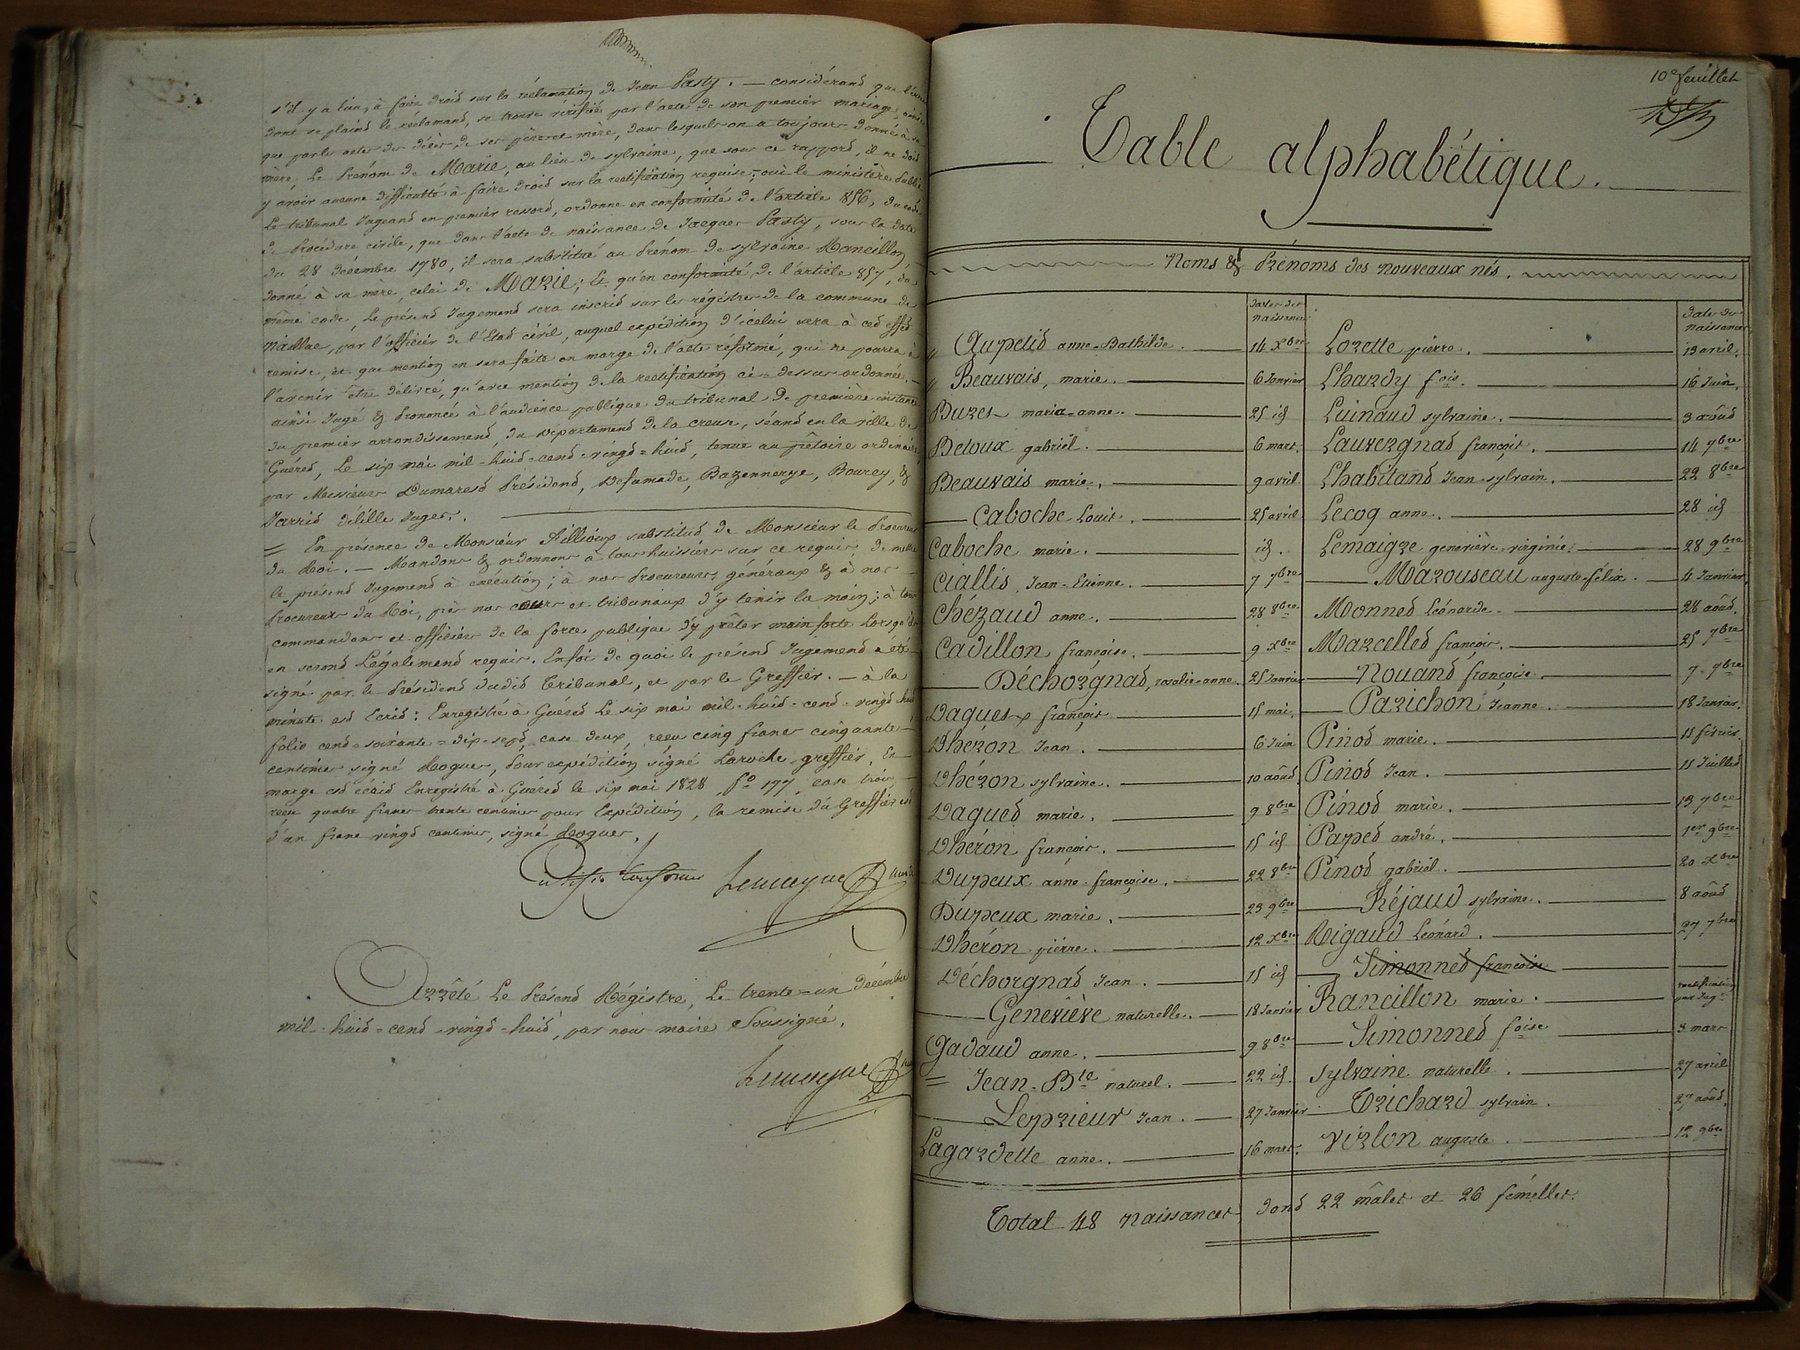 s'il y a lieu, à faire droit sur la réclamation de Jean Pasty. — considérant que l'erreur
dont se plaind le réclamand, se trouve vérifiée par l'acte de son premier mariage, ainsi
que par les actes de décès de ses père et mère, dans lesquels on a toujours donné à sa
mère, Le prénom de Marie, au lieu de sylvaine, que sous ce rapport, il ne doit
y avoir aucune difficulté à faire droit sur la rectification requise; ouï le ministère Public
Le tribunal Jugeand en premier ressort, ordonne en conformité de l'article 856, du code
de Procédure civile, que dans l'acte de naissance de Jacques Pasty, sous la date
du 28 décembre 1780, il sera substitué au Prénom de sylvaine Rancillon,
donné à sa mère, celui de Marie; Et qu'en conformité de l'article 857, du
même code, Le présend Jugement sera inscrit sur les régistres de la commune de
Naillac, par l'officier de l'Etat civil, auquel expédition d'icelui sera à cet effet
remise, et que mention en sera faite en marge de l'acte réformé, qui ne pourra à
l'avenir être délivré, qu'avec mention de la rectification ci-dessus ordonnée. —
ainsi Jugé & Prononcé à l'audience publique du tribunal de première instance
du premier arrondissement, du département de la creuse, séand en la ville de
Guéret, Le six mai mil-huit-cent-vingt-huit, tenue au prétoire ordinaire,
par Messieurs Dumarest Présidend, Defumade, Bazennerye, Bourey, &
Jarrit Délille Juges.
= En présence de Monsieur Fillioux substitud de Monsieur le Procureur
du Roi. — Mandons & ordonnons à tous huissiers sur ce requis de mettre
le présend Jugement à exécution; à nos Procureurs généraux & à nos
Procureurs du Roi, près nos cours et tribunaux d'y tenir la main; à tous
commandans et officiers de la force publique d'y prêter mainforte Lorsqu'ils
en seront Légalement requis. En foi de quoi le présend Jugement a été
signé par le Présidend dudit Tribunal, et par le Greffier. — à la
minute est Ecrit: Enregistré à Guéret Le six mai mil-huit-cent-vingt-huit
folio cent-soixante-dix-sept, case deux, reçu cinq francs cinquante
centimes signé Rogues, Pour expédition signé Laroche greffier, En
marge est écrit Enregistré à Guéret le six mai 1828 f° 177, case trois,
reçu quatre francs trente centimes pour Expédition, la remise du Greffier est
d'un franc vingt centimes, signé Rogues.
Arrêté Le Présend Régistre, Le trente-un décembre
mil-huit-cent-vingt-huit, par nous maire Soussigné.
10e feuillet
Table alphabétique.
Noms & Prénoms des nouveaux nés.
dates des naissances
date des naissances
Aupetit anne-Bathilde. 14 Xbre Lozette pierre. 13 avril.
Beauvais, marie. 6 Janvier Lhardy fois. 16 Juin.
Buzes maria-anne. 25 id Luinaud sylvaine. 3 août
Betoux gabriel. 6 mars. Lauvergnat françois. 14 7bre
Beauvais marie. 9 avril Lhabitand Jean-sylvain. 22 8bre
Caboche Louis. 25 avril Lecoq anne. 28 id
Caboche marie. id. Lemaigre geneviève virginie. 28 9bre
Ciallis, Jean-Etienne. 7 7bre Marouseau auguste-félix. 4 Janvier
Chézaud anne. 28 8bre Monnet Léonarde. 28 août.
Cadillon françoise. 9 Xbre Marcelled françois. 25 7bre
Déchorgnat, rosalie-anne. 25 Janvier Nouand françoise. 7 7bre
Daques françois 15 mai. Parichon Jeanne. 18 Janvier.
Dhéron Jean. 6 Juin Pinot marie. 11 février.
Dhéron sylvaine. 10 août Pinot Jean. 11 Juillet
Daques marie. 9 8bre Pinot marie. 13 7bre
Dhéron françois. 15 id Papet andré. 1er 9bre
Dupeux anne-françoise. 22 8bre Pinot gabriel. 20 Xbre
Dupeux marie. 23 9bre Réjaud sylvaine. 8 août
Dhéron pierre. 12 Xbre Rigaud Léonard. 27 7bre
Déchorgnat Jean. 15 id Simonnet françoise
Geneviève naturelle. 18 Janvier Rancillon marie. rectification par Jugt
Gadaud anne. 9 8bre Simonnet foise 3 mars
Jean-Bte naturel. 22 id. Sylvaine naturelle. 27 avril
Leprieur Jean. 27 Janvier Trichard sylvain. 27 août.
Lagardette anne. 16 mars. Virlon auguste. 12 9bre
Total 48 naissances, dont 22 mâles et 26 fémelles.